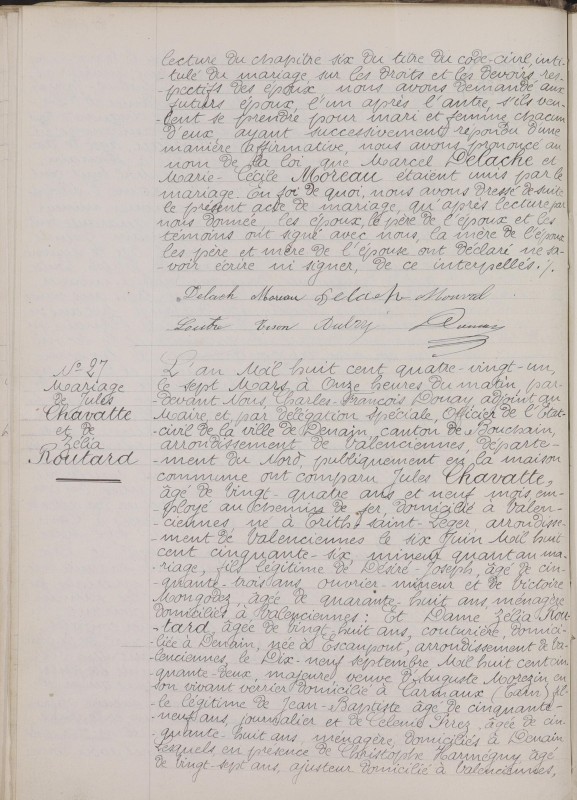 lecture du chapitre six du titre du code-civil, inti-
-tulé du mariage, sur les droits et les devoirs res-
-pectifs des époux, nous avons demandé aux
futurs époux, l'un après l'autre, s'ils veu-
-lent se prendre pour mari et femme chacun
d'eux, ayant successivement répondu d'une
manière affirmative, nous avons prononcé au
nom de la loi, que Marcel Delache et
Marie-Cécile Moreau étaient unis par le
mariage. En foi de quoi, nous avons dressé de suite
le présent acte de mariage, qu'après lecture par
nous donnée, les époux, le père de l'époux et les
témoins ont signé avec nous, la mère de l'époux
les père et mère de l'épouse ont déclaré ne sa-
-voir écrire ni signer, de ce interpellés./.
Delach Moreau Delach Monval
Tison
No 27
Mariage
de Jules
Chavatte
et de
Zélia
Routard
L'an Mil huit cent quatre-vingt-un,
le sept Mars, à Onze heures du matin, par-
-devant Nous, Charles-François Douay adjoint au
Maire, et, par délégation spéciale, Officier de l'Etat-
-civil de la ville de Denain, canton de Bouchain,
arrondissement de Valenciennes, départe-
-ment du Nord, publiquement en la maison
commune ont comparu Jules Chavatte,
âgé de vingt-quatre ans et neuf mois, em-
-ployé au chemins de fer, domicilié à Valen-
-ciennes, né à Trith-Saint-Léger, arrondisse-
-ment de Valenciennes le six Juin Mil huit
cent cinquante-six, mineur quant au ma-
-riage, fils légitime de Désiré-Joseph, âgé de cin-
-quante-trois ans, ouvrier-mineur et de Victoire
Mongodez, âgée de quarante-huit ans, ménagère
domiciliés à Valenciennes: Et Dame Zélia Rou-
-tard, âgée de vingt-huit ans, couturière, domici-
-liée à Denain, née à Escaupont, arrondissement de Va-
-lenciennes, le Dix-neuf septembre Mil huit cent cin-
-quante-deux, majeure, veuve d'Auguste en
son vivant verrier domicilié à Carmaux (Tarn) fil-
-le légitime de Jean-Baptiste âgé de cinquante-
-neuf ans, journalier et de Célénie âgée de cin-
-quante-huit ans, ménagère, domiciliés à Denain
Lesquels en présence de Christophe Harmegny, âgé
de vingt-sept ans, ajusteur domicilié à Valenciennes,